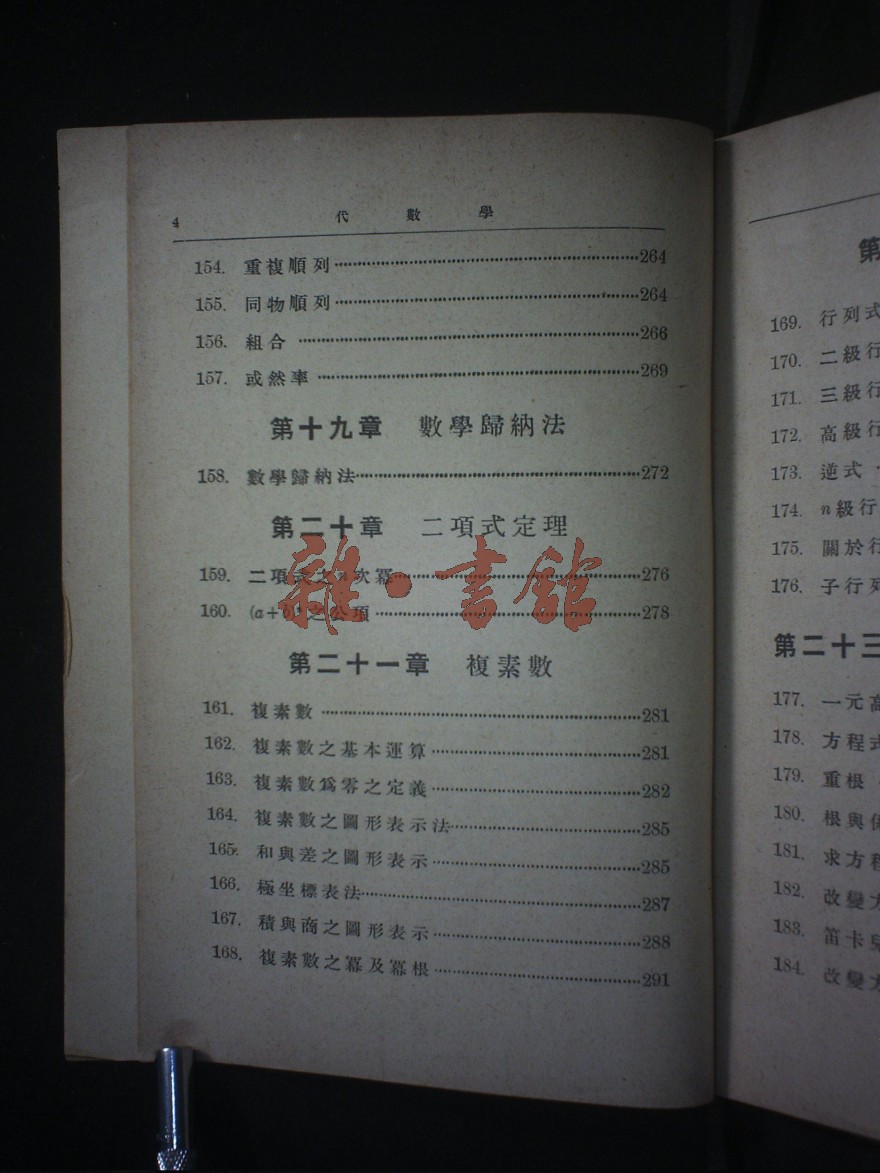 4 代數學
154. 重複順列 264
155. 同物順列 264
156. 組合 266
157. 或然率 269
第十九章 數學歸納法
158. 數學歸納法 272
第二十章 二項式定理
159. 二項式之n次冪 276
160. (a+b)ⁿ之公項 278
第二十一章 複素數
161. 複素數 281
162. 複素數之基本運算 281
163. 複素數爲零之定義 282
164. 複素數之圖形表示法 285
165. 和與差之圖形表示 285
166. 極坐標表法 287
167. 積與商之圖形表示 288
168. 複素數之冪及冪根 291
雜·書館
第
169. 行列式
170. 二級行
171. 三級行
172. 高級行
173. 逆式
174. n級行
175. 關於行
176. 子行列
第二十三
177. 一元高
178. 方程式
179. 重根
180. 根與係
181. 求方程
182. 改變方
183. 笛卡兒
184. 改變方